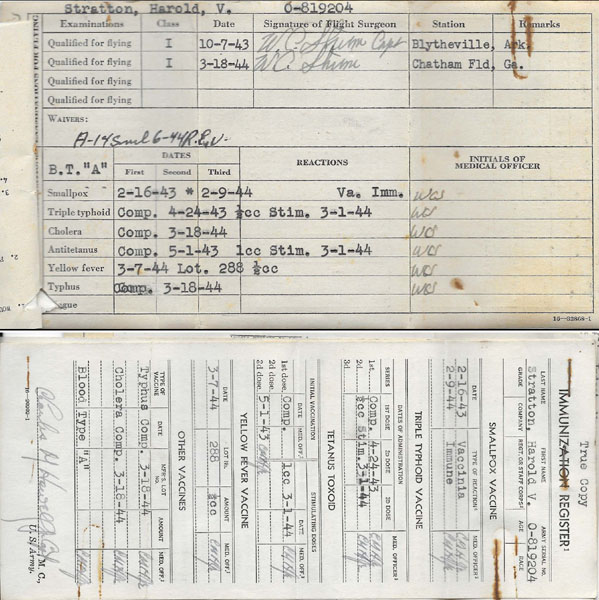 Stratton, Harold, V. O-819204
Examinations Class Date Signature of Flight Surgeon Station Remarks
Qualified for flying I 10-7-43 W.C. Shinn Capt Blytheville, Ark.
Qualified for flying I 3-18-44 W.C. Shinn Chatham Fld, Ga.
Qualified for flying
Qualified for flying
WAIVERS:
B.T. "A" DATES REACTIONS INITIALS OF MEDICAL OFFICER
First Second Third
Smallpox 2-16-43 * 2-9-44 Va. Imm. WCS
Triple typhoid Comp. 4-24-43 ½cc Stim. 3-1-44 WCS
Cholera Comp. 3-18-44 WCS
Antitetanus Comp. 5-1-43 1cc Stim. 3-1-44 WCS
Yellow fever 3-7-44 Lot. 288 ½cc WCS
Typhus Comp. 3-18-44 WCS
True Copy
IMMUNIZATION REGISTER¹
LAST NAME FIRST NAME ARMY SERIAL NO.
Stratton, Harold V. O-819204
GRADE COMPANY REGT. OR STAFF CORPS² AGE RACE
SMALLPOX VACCINE
DATE TYPE OF REACTION³ MED. OFFICER²
2-16-43 Vaccinia
2-9-44 Immune
TRIPLE TYPHOID VACCINE
DATES OF ADMINISTRATION
SERIES 1ST DOSE 2D DOSE 3D DOSE MED. OFFICER²
1st. Comp. 4-24-43
2d. ½cc Stim. 3-1-44
3d.
TETANUS TOXOID
INITIAL VACCINATION STIMULATING DOSES
DATE MED. OFF.² DATE MED. OFF.²
1st dose. Comp. 1cc 3-1-44
2d dose. 5-1-43
3d dose.
YELLOW FEVER VACCINE
DATE LOT NO. AMOUNT MED. OFF.²
3-7-44 288 ½cc
OTHER VACCINES
TYPE OF VACCINE DATE MFR'S. LOT NO. AMOUNT MED. OFF.²
Typhus Comp. 3-18-44
Cholera Comp. 3-18-44
Blood Type "A"
M. C.,
U. S. Army.